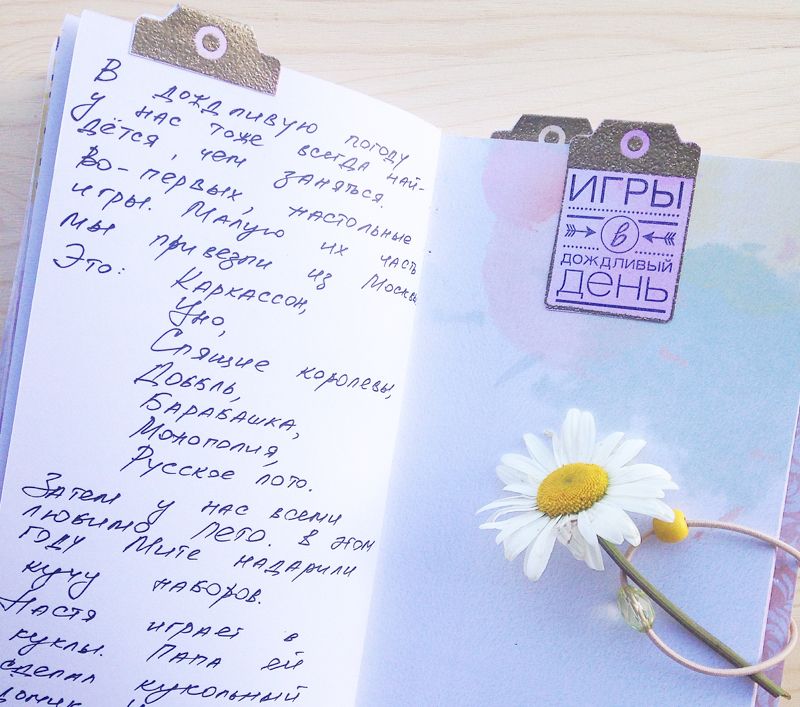 В дождливую погоду
у нас тоже всегда най-
дётся, чем заняться.
Во-первых, настольные
игры. Малую их часть
мы привезли из Москвы
Это:
Каркассон,
Уно,
Спящие королевы,
Доббль,
Барабашка,
Монополия,
Русское лото.
Затем у нас всеми
любимо лето. В этом
году Мите надарили
кучу наборов.
Настя играет в
куклы. Папа ей
сделал кукольный
домик
ИГРЫ
в
ДОЖДЛИВЫЙ
ДЕНЬ